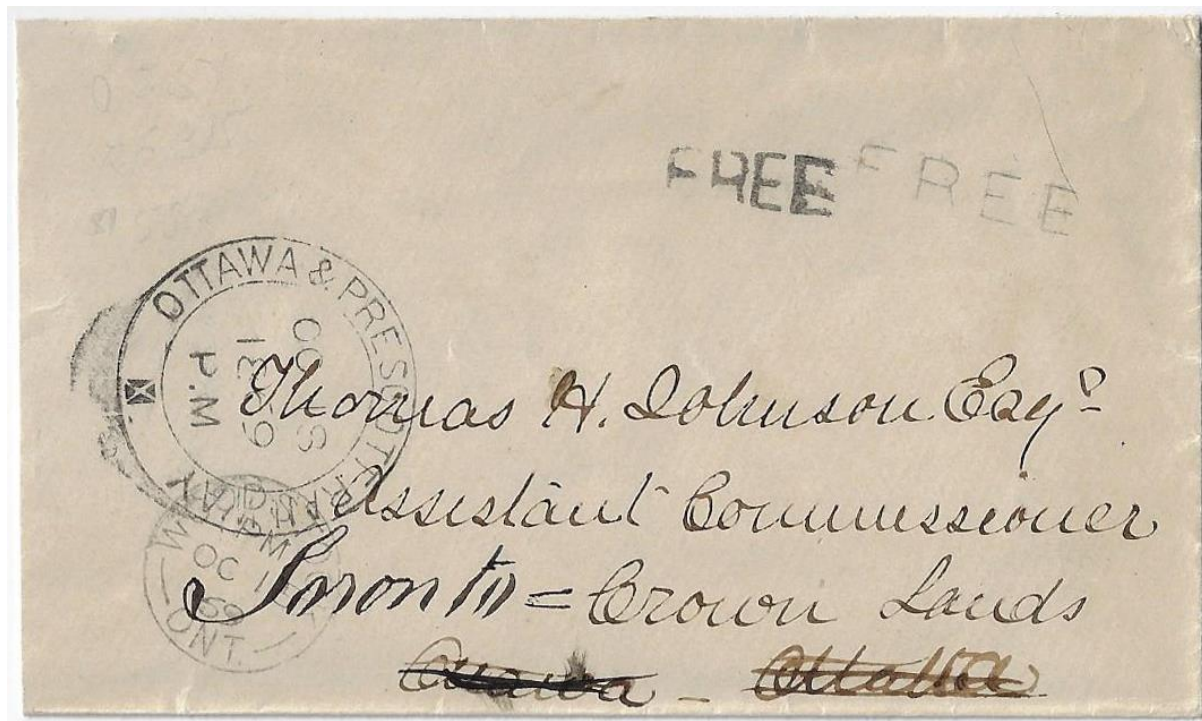 FREE FREE
OTTAWA & PRESCOTT RAILWAY
P.M
Thomas H. Johnson Esqr
Assistant Commissioner
Toronto = Crown Lands
Ottawa - Ottawa
OC 1
69
ONT.